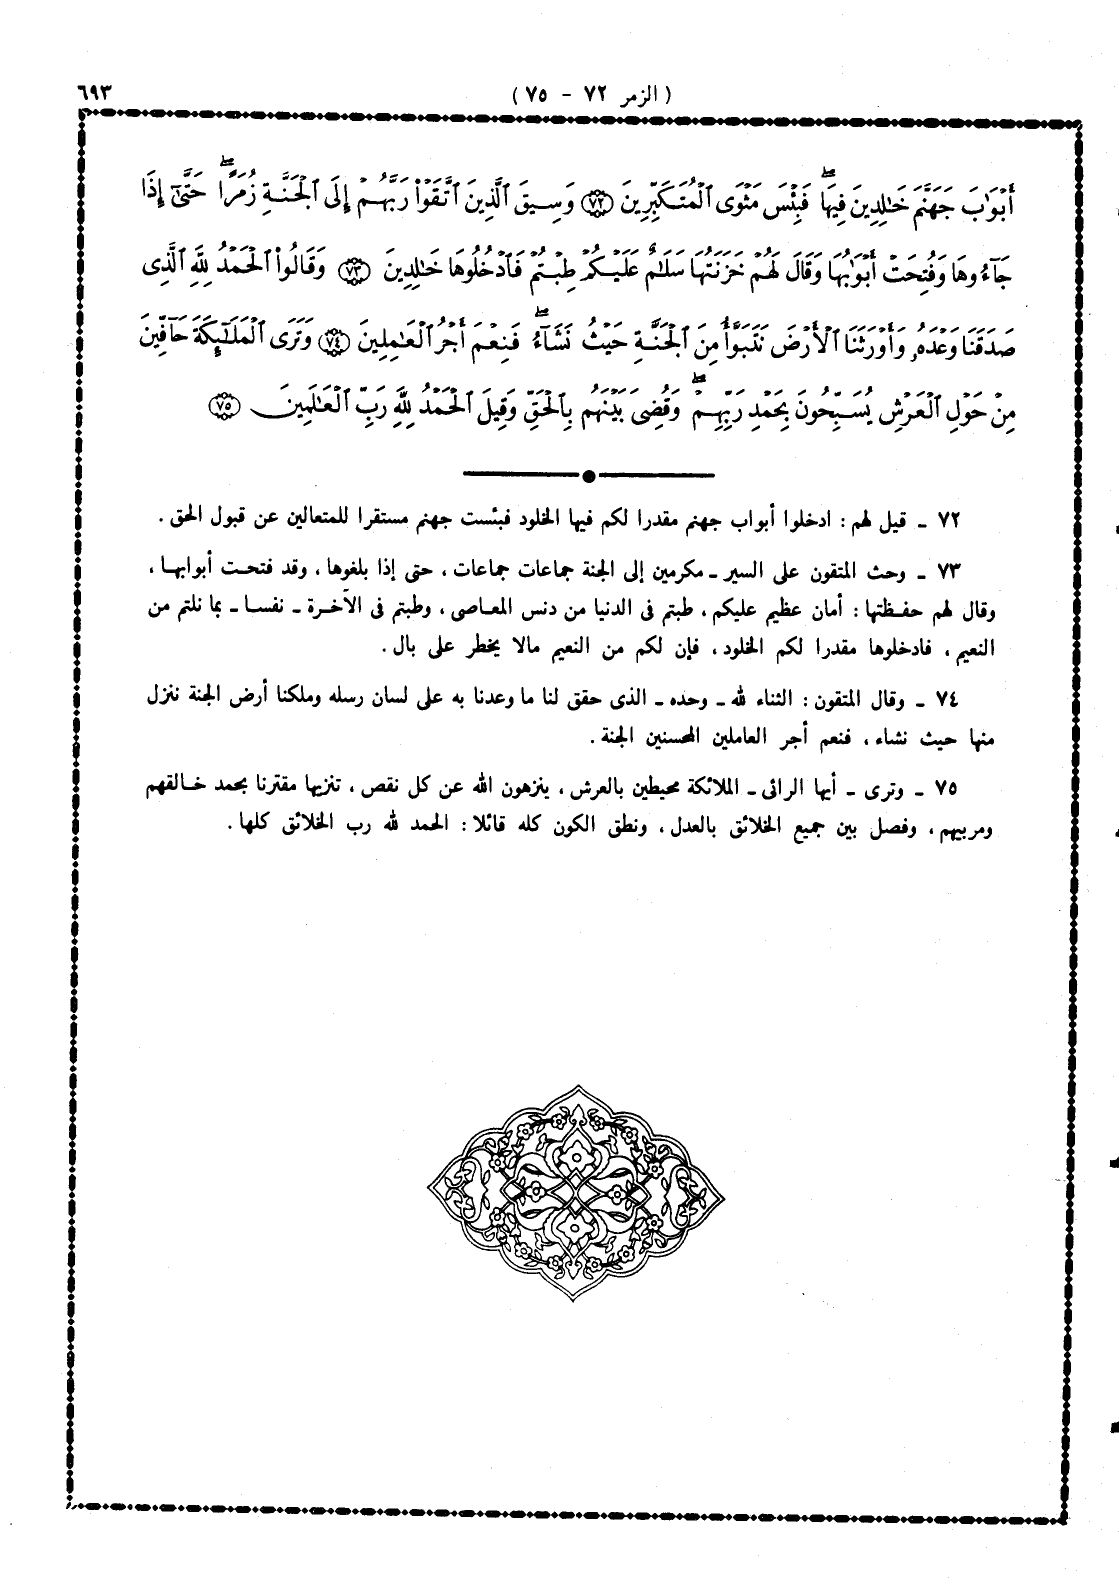 ٦٩٣
( الزمر ٧٢ - ٧٥ )
أَبْوَٰبَ جَهَنَّمَ خَٰلِدِينَ فِيهَا ۖ فَبِئْسَ مَثْوَى ٱلْمُتَكَبِّرِينَ ﴿٧٢﴾ وَسِيقَ ٱلَّذِينَ ٱتَّقَوْا۟ رَبَّهُمْ إِلَى ٱلْجَنَّةِ زُمَرًا ۖ حَتَّىٰٓ إِذَا
جَآءُوهَا وَفُتِحَتْ أَبْوَٰبُهَا وَقَالَ لَهُمْ خَزَنَتُهَا سَلَٰمٌ عَلَيْكُمْ طِبْتُمْ فَٱدْخُلُوهَا خَٰلِدِينَ ﴿٧٣﴾ وَقَالُوا۟ ٱلْحَمْدُ لِلَّهِ ٱلَّذِى
صَدَقَنَا وَعْدَهُۥ وَأَوْرَثَنَا ٱلْأَرْضَ نَتَبَوَّأُ مِنَ ٱلْجَنَّةِ حَيْثُ نَشَآءُ ۖ فَنِعْمَ أَجْرُ ٱلْعَٰمِلِينَ ﴿٧٤﴾ وَتَرَى ٱلْمَلَٰٓئِكَةَ حَآفِّينَ
مِنْ حَوْلِ ٱلْعَرْشِ يُسَبِّحُونَ بِحَمْدِ رَبِّهِمْ ۖ وَقُضِىَ بَيْنَهُم بِٱلْحَقِّ وَقِيلَ ٱلْحَمْدُ لِلَّهِ رَبِّ ٱلْعَٰلَمِينَ ﴿٧٥﴾
٧٢ - قيل لهم : ادخلوا أبواب جهنم مقدرا لكم فيها الخلود فبئست جهنم مستقرا للمتعالين عن قبول الحق .
٧٣ - وحث المتقون على السير - مكرمين إلى الجنة جماعات جماعات ، حتى إذا بلغوها ، وقد فتحت أبوابها ،
وقال لهم حفظتها : أمان عظيم عليكم ، طبتم فى الدنيا من دنس المعاصى ، وطبتم فى الآخرة - نفسا - بما نلتم من
النعيم ، فادخلوها مقدرا لكم الخلود ، فإن لكم من النعيم مالا يخطر على بال .
٧٤ - وقال المتقون : الثناء لله - وحده - الذى حقق لنا ما وعدنا به على لسان رسله وملكنا أرض الجنة ننزل
منها حيث نشاء ، فنعم أجر العاملين المحسنين الجنة .
٧٥ - وترى - أيها الرائى - الملائكة محيطين بالعرش ، ينزهون الله عن كل نقص ، تنزيها مقترنا بحمد خالقهم
ومربيهم ، وفصل بين جميع الخلائق بالعدل ، ونطق الكون كله قائلا : الحمد لله رب الخلائق كلها .